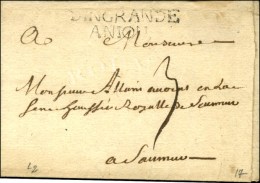 D'INGRANDE
ANJOU
A Monsieur
Monsieur Allain avocat en la
Senechaussée Royalle de Saumur
a Saumur